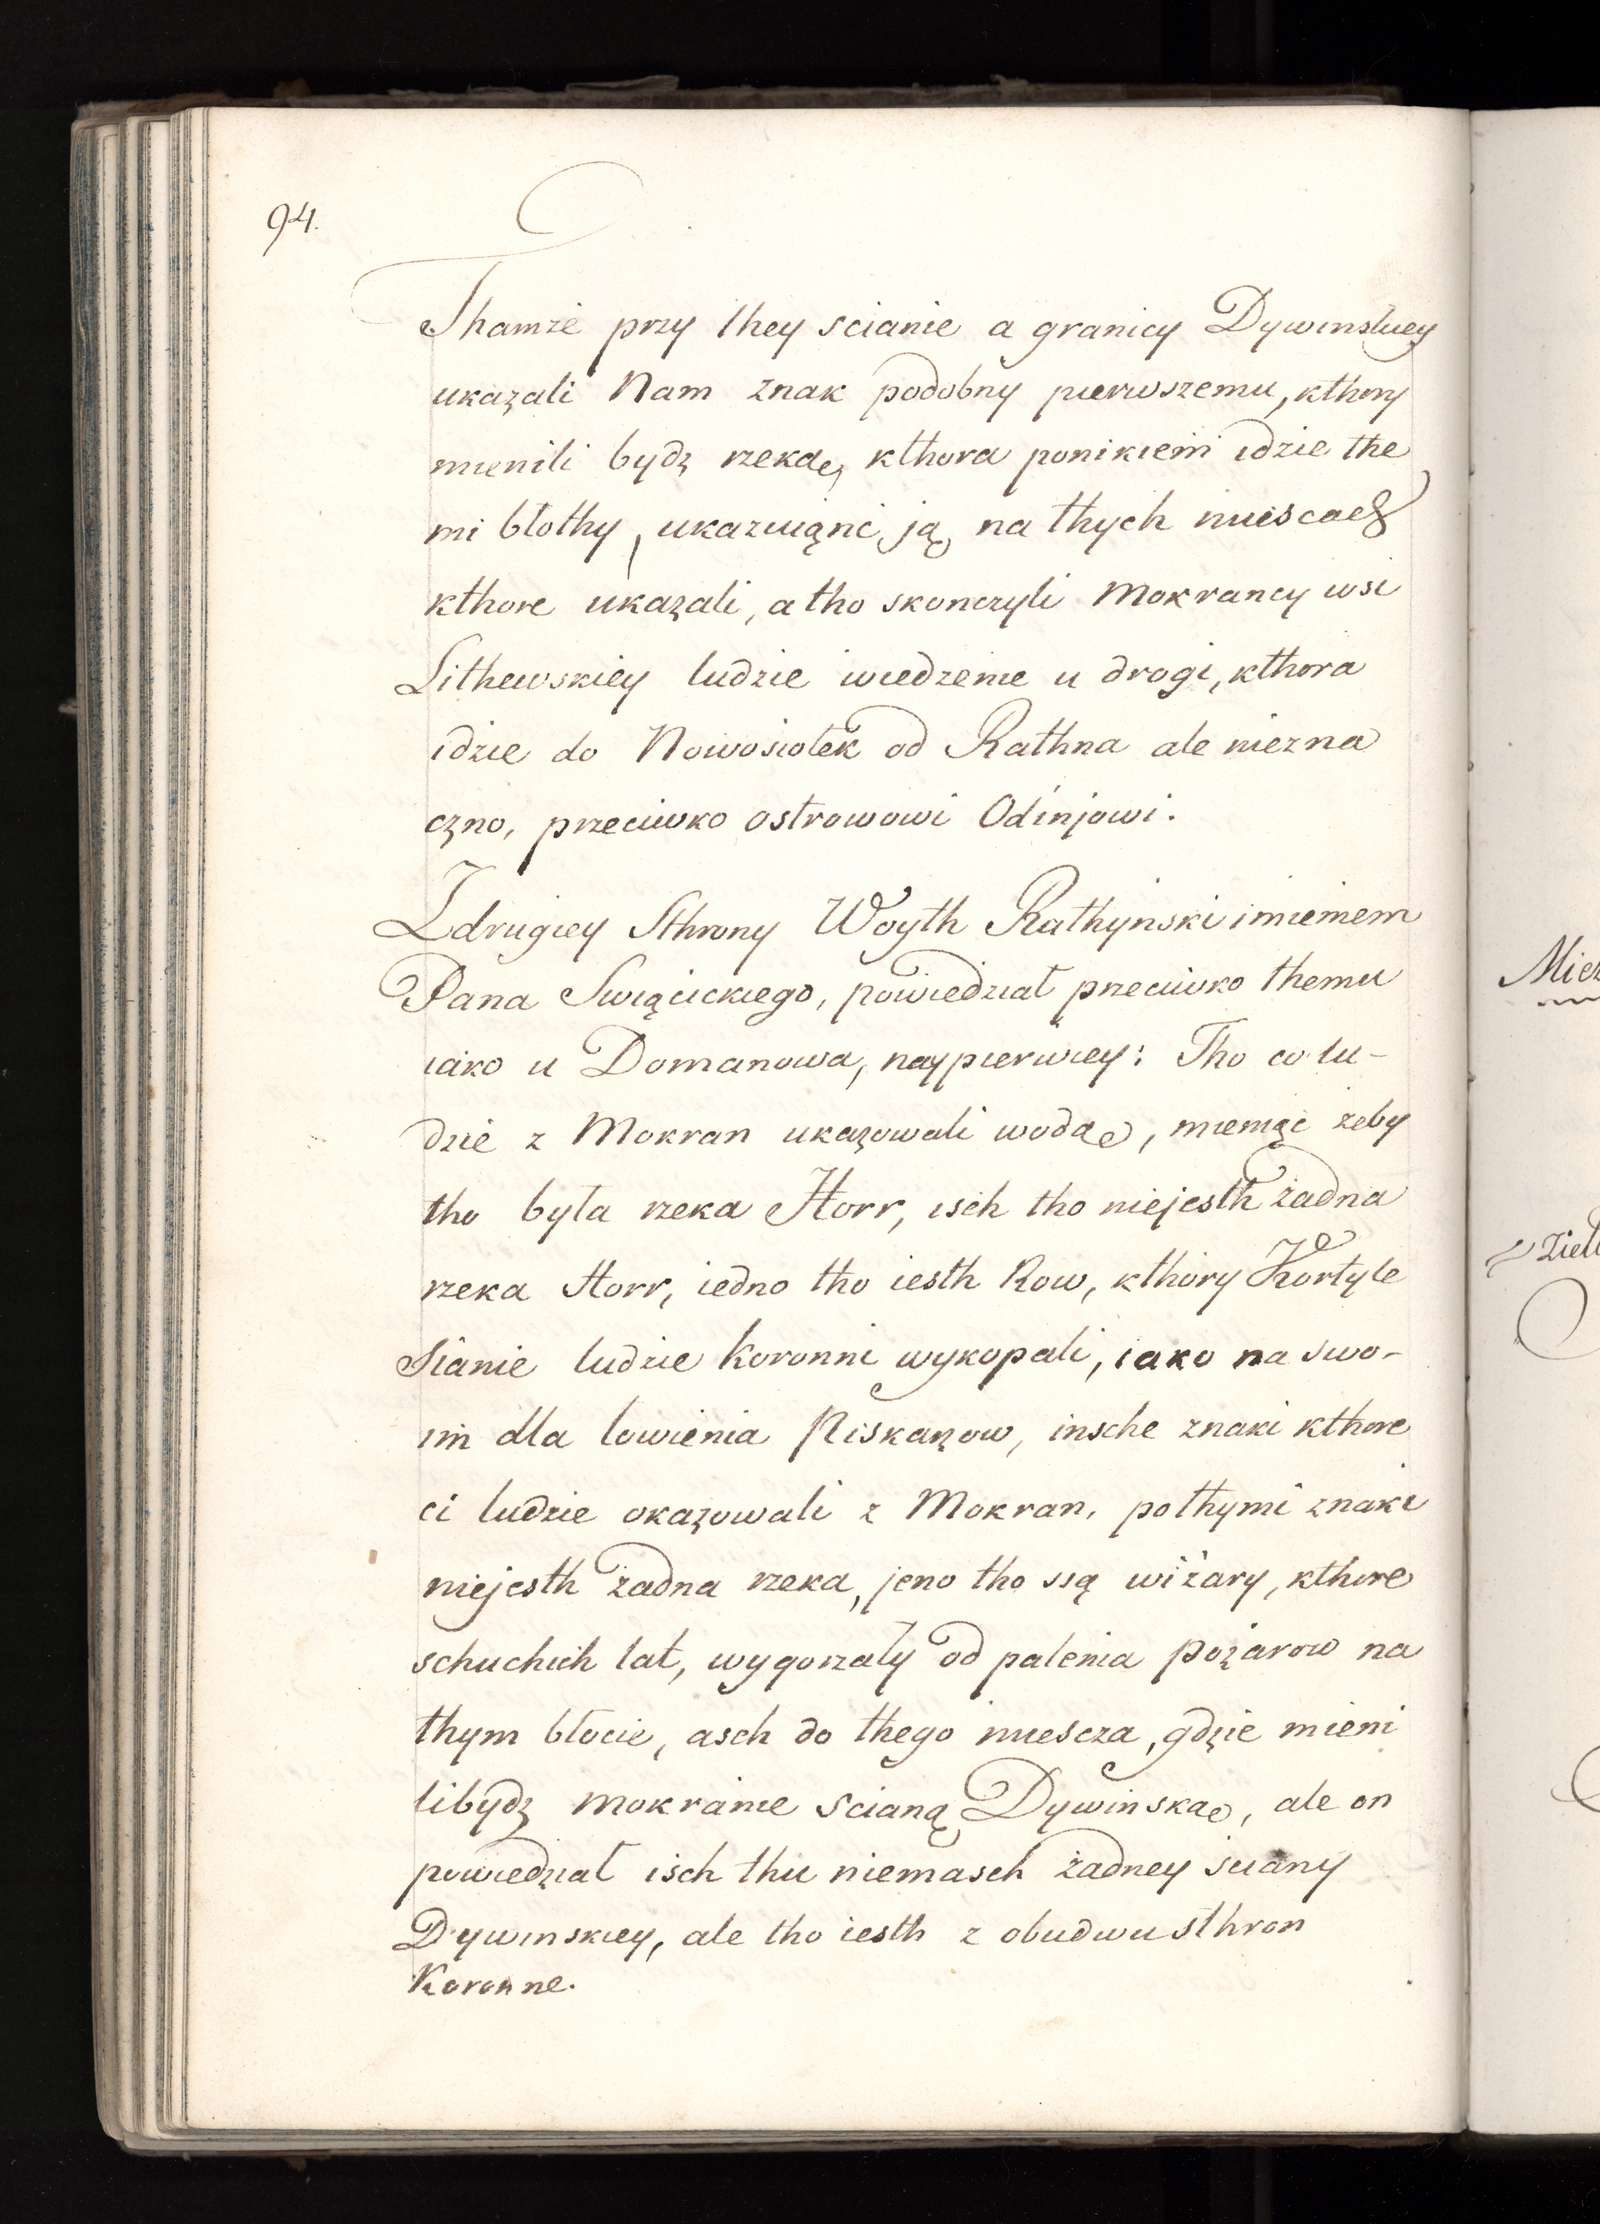 94.
Thamże przy they scianie a granicy Dywinskiey
ukaząli Nam znak podobny pierwszemu, kthory
mienili bydz rzekąe, kthora ponikiem idzie the
mi błothy, ukazuiąnc ją, na thych miescach
kthore ukazali, a tho skonczyli Mokrancy wsi
Lithewskiey ludzie wiedzenie u drogi, kthora
idzie do Nowosiołek od Rathna ale niezna
czno, przeciwko ostrowowi Odinjowi.
Zdrugiey Sthrony Woyth Rathynski imieniem
Pana Swiącickiego, powiedział przeciwko themu
iako u Domanowa, naypierwiey: Tho co lu-
dzie z Mokran ukazowali wodąe, mieniąc żeby
tho była rzeka Horr, isch tho niejesth żadna
rzeka Horr, iedno tho iesth Row, kthory Kortyle
sianie ludzie Koronni wykopali, iako na swo-
im dla lowienia Piskarzow, insche znaki kthore
ci ludzie okazowali z Mokran, pothymi znaki
niejesth żadna rzeka, jeno tho są wiżary, kthore
schuchich lat, wygorzały od palenia pożarow na
thym błocie, asch do thego miescza, gdzie mieni
li bydz mokranie scianą Dywinskąe, ale on
powiedział isch thu niemasch żadney sciany
Dywinskiey, ale tho iesth z obudwu sthron
Koronne.
Mier
Ziel